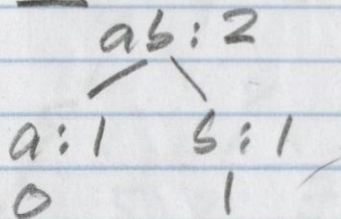 ab:2
a:1 b:1
0 1